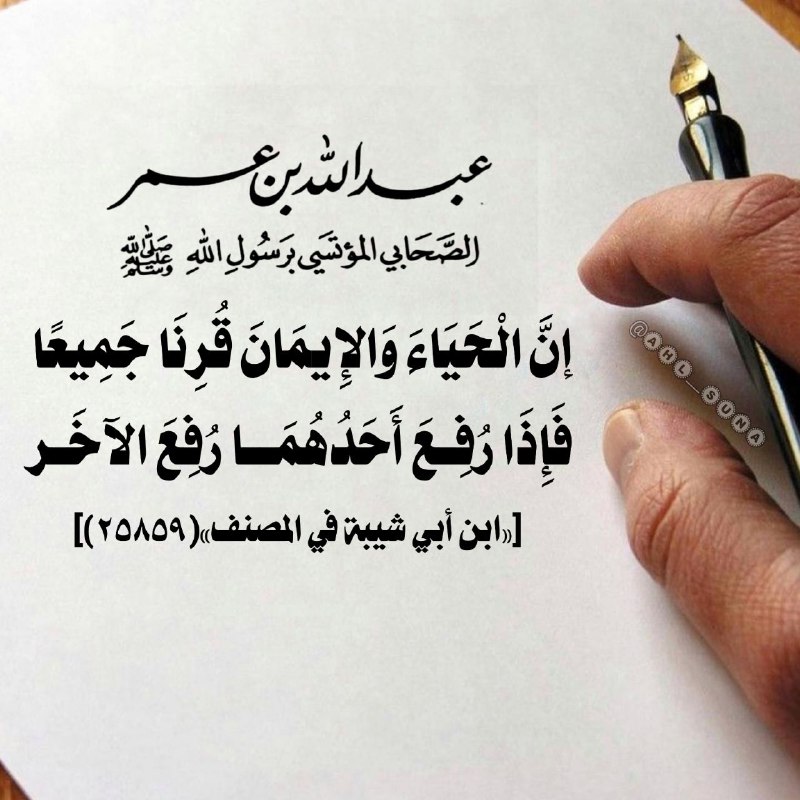 عبد الله بن عمر
الصَّحَابي المؤتسَي برَسُولِ اللهِ ﷺ
إنَّ الْحَيَاءَ وَالإِيمَانَ قُرِنَا جَمِيعًا
فَإِذَا رُفِعَ أَحَدُهُمَا رُفِعَ الآخَر
[«ابن أبي شيبة في المصنف»(٢٥٨٥٩)]
@AHL_SUNA